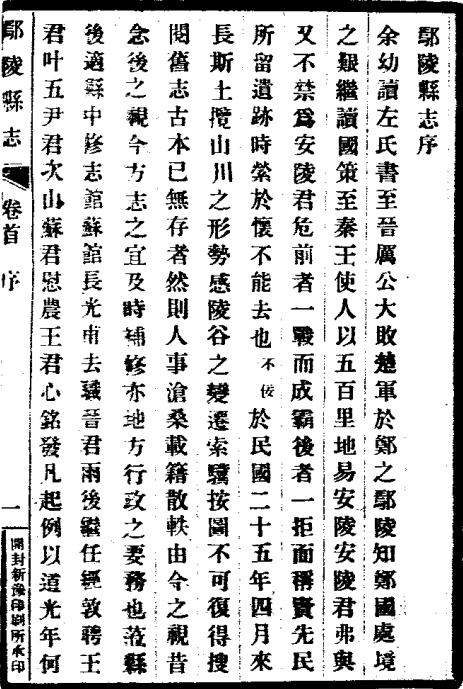 鄢陵縣志序
余幼讀左氏書至晉厲公大敗楚軍於鄭之鄢陵知鄭國處境
之艱繼讀國策至秦王使人以五百里地易安陵安陵君弗與
又不禁爲安陵君危前者一戰而成霸後者一拒而稱賢先民
所留遺跡時縈於懷不能去也不佞於民國二十五年四月來
長斯土攬山川之形勢感陵谷之變遷索驥按圖不可復得搜
閱舊志古本已無存者然則人事滄桑載籍散軼由今之視昔
念後之視今方志之宜及時補修亦地方行政之要務也蒞縣
後適縣中修志館蘇館長光甫去職晉君雨後繼任經敦聘王
君叶五尹君次山蘇君慰農王君心銘發凡起例以道光年何
鄢陵縣志
卷首
序
一
開封新豫印刷所承印